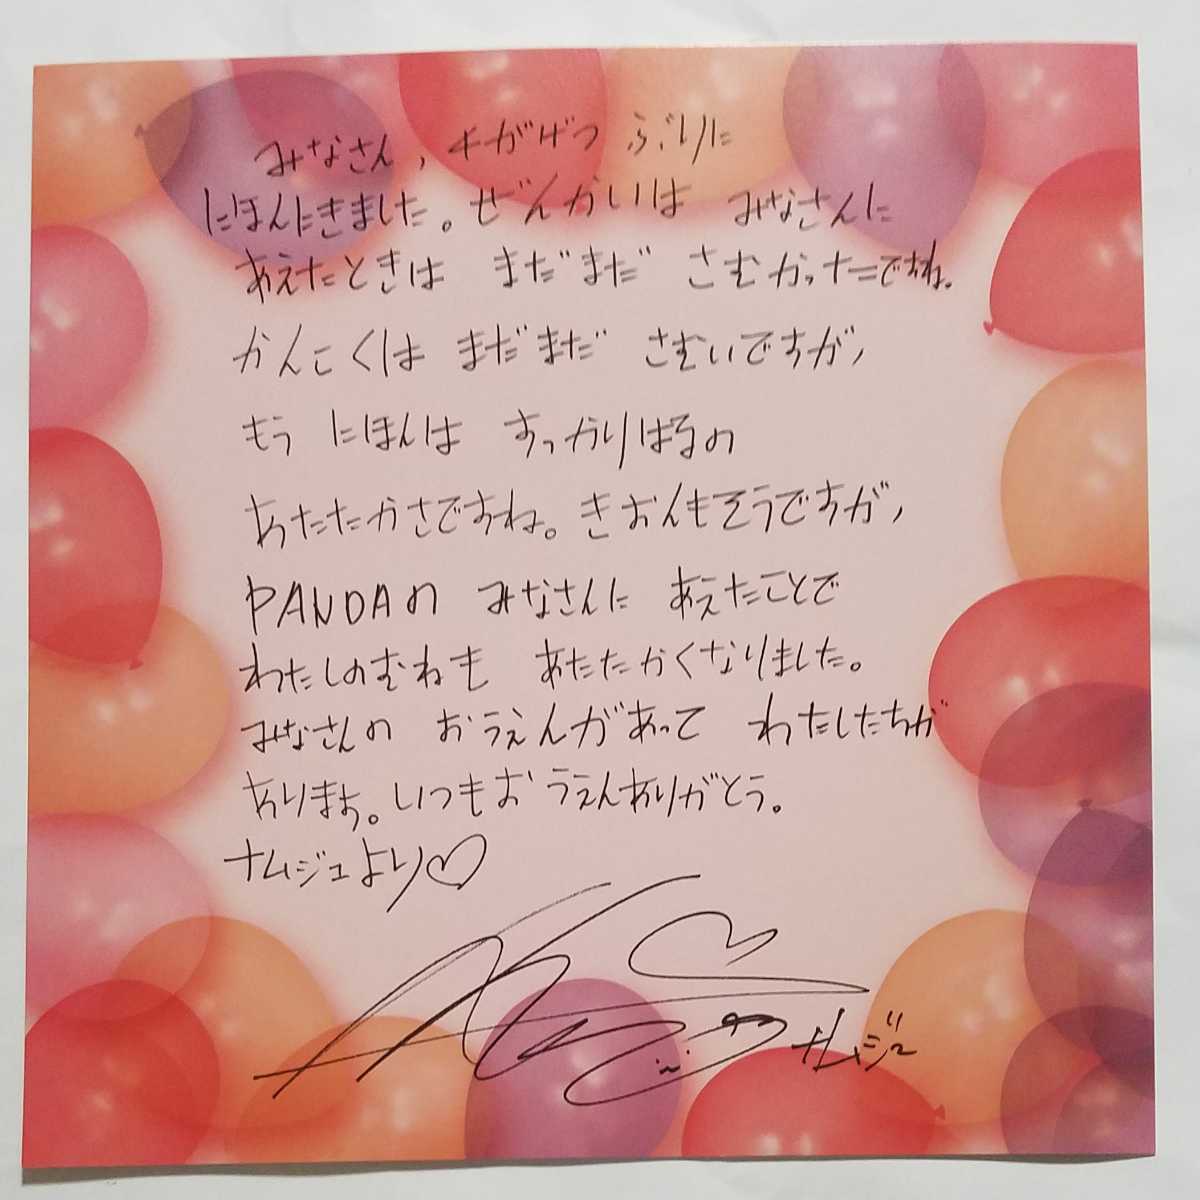 みなさん、4がげつ ぶりに
にほんにきました。ぜんかいは みなさんに
あえたときは まだまだ さむかったですね。
かんこくは まだまだ さむいですが、
もう にほんは すっかりはるの
あたたかさですね。きおんもそうですが、
PANDAの みなさんに あえたことで
わたしのむねも あたたかくなりました。
みなさんの おうえんがあって わたしたちが
あります。いつもおうえんありがとう。
ナムジュより♡
ナムジュ